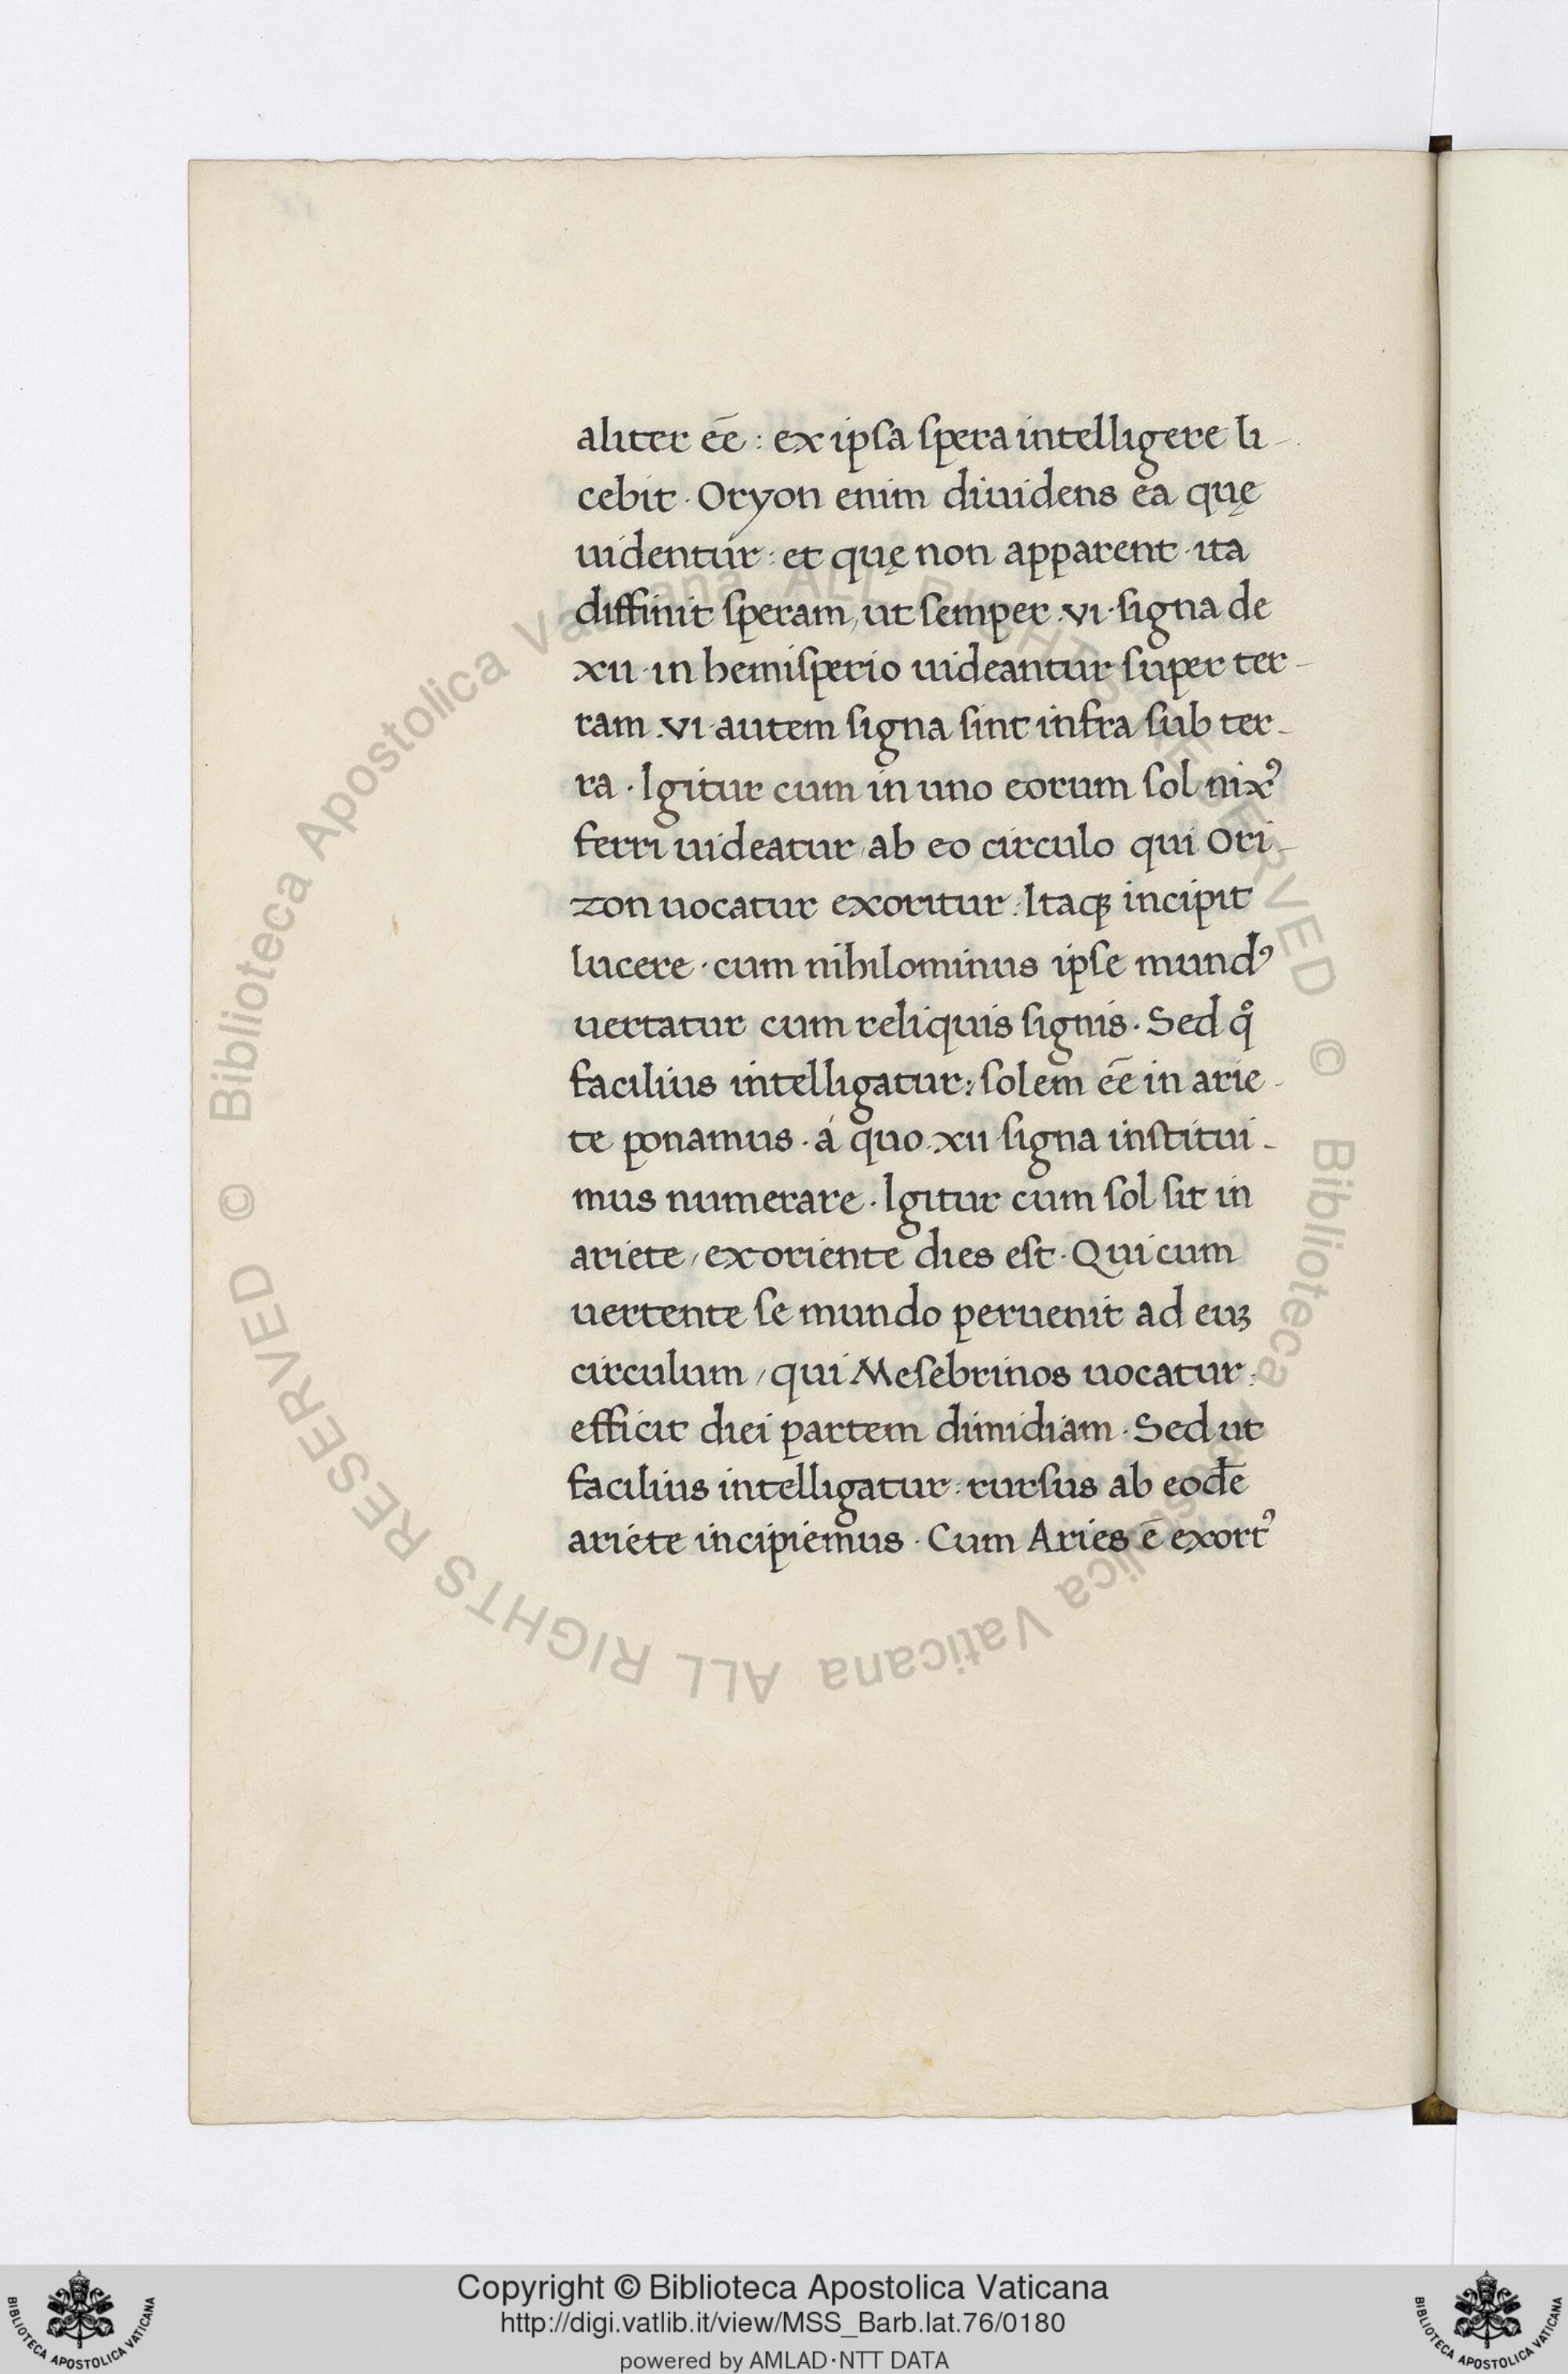 aliter ēē : ex ipſa ſpera intelligere li-
cebit · Oryon enim diuidens ea quę
uidentur : et quę non apparent · ita
diffinit ſperam, ut ſemper .vi· ſigna de
xii · in hemiſperio uideantur ſuper ter-
ram .vi· autem ſigna ſint infra ſub ter-
ra · Igitur cum in uno eorum ſol nixꝰ
ferri uideatur, ab eo circulo qui Ori-
zon uocatur exoritur : Itaqꝫ incipit
lucere · cum nihilominus ipſe mundꝰ
uertatur cum reliquis ſignis · Sed qͦ
facilius intelligatur : ſolem ēē in arie-
te ponamus · á quo .xii· ſigna inſtitui-
mus numerare · Igitur cum ſol ſit in
ariete / exoriente dies eſt · Qui cum
uertente ſe mundo peruenit ad euꝫ
circulum / qui Meſebrinos uocatur :
efficit diei partem dimidiam · Sed ut
facilius intelligatur : rurſus ab eodē
ariete incipiemus · Cum Aries ē exortꝰ
© Biblioteca Apostolica Vaticana ALL RIGHTS RESERVED © Biblioteca Apostolica Vaticana ALL RIGHTS RESERVED
Copyright © Biblioteca Apostolica Vaticana
http://digi.vatlib.it/view/MSS_Barb.lat.76/0180
powered by AMLAD·NTT DATA
BIBLIOTECA APOSTOLICA VATICANA
BIBLIOTECA APOSTOLICA VATICANA